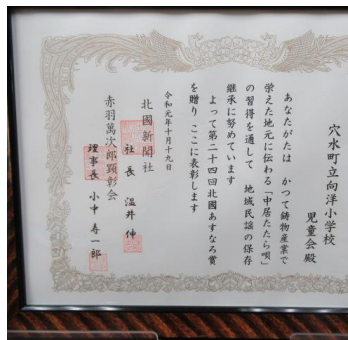 穴水町立向洋小学校
児童会殿
あなたがたは かつて鋳物産業で
栄えた地元に伝わる「中居たたら唄」
の習得を通して 地域民謡の保存
継承に努めています
よって第二十四回北國あすなろ賞
を贈り ここに表彰します
令和元年十月十九日
北國新聞社
社長 温井 伸
赤羽萬次郎顕彰会
理事長 小中 寿一郎